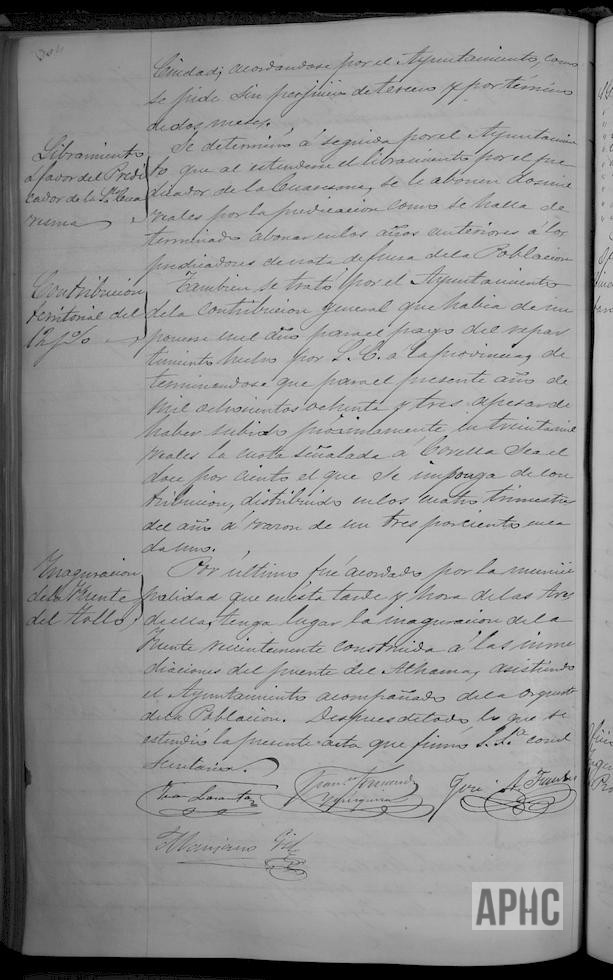 Ciudad; acordandose por el Ayuntamiento, como
se pide sin perjuicio de tercero y por término
de dos meses.
Libramiento
a favor del Predi
cador de la Sta. Cua
resma
Se determinó á seguida por el Ayuntamien
to que al estenderse el libramiento por el pre
dicador de la Cuaresma, se le abonen dos mil
reales por la predicacion como se halla de
terminado abonar en los años anteriores á los
predicadores de nota de fuera de la Poblacion
Contribucion
territorial del
12 p%
Tambien se trató por el Ayuntamiento
de la Contribucion general que habia de im
ponerse este año para el pago del repar
timiento hecho por S.E. a la provincia, de
terminandose que para el presente año de
mil ochocientos ochenta y tres apesar de
haber subido proximamente en treinta mil
reales la cuota señalada á Corella sea el
doce por ciento el que se imponga de con
tribucion, distribuido en los cuatro trimestres
del año á razon de un tres por ciento en ca
da uno.
Inaguracion
de la Fuente
del Hollo
Por último fué acordado por la munici
palidad que en esta tarde y hora de las tres
de ella, tenga lugar la inaguracion de la
Fuente recientemente construida á las inme
diaciones del puente del Alhama, asistiendo
el Ayuntamiento acompañado de la orquesta
de la Poblacion. Despues de todo lo que se
estendió la presente acta que firmó S.Sa. con el
Secretario.
Franco.
José
Mariano Gil
APHC